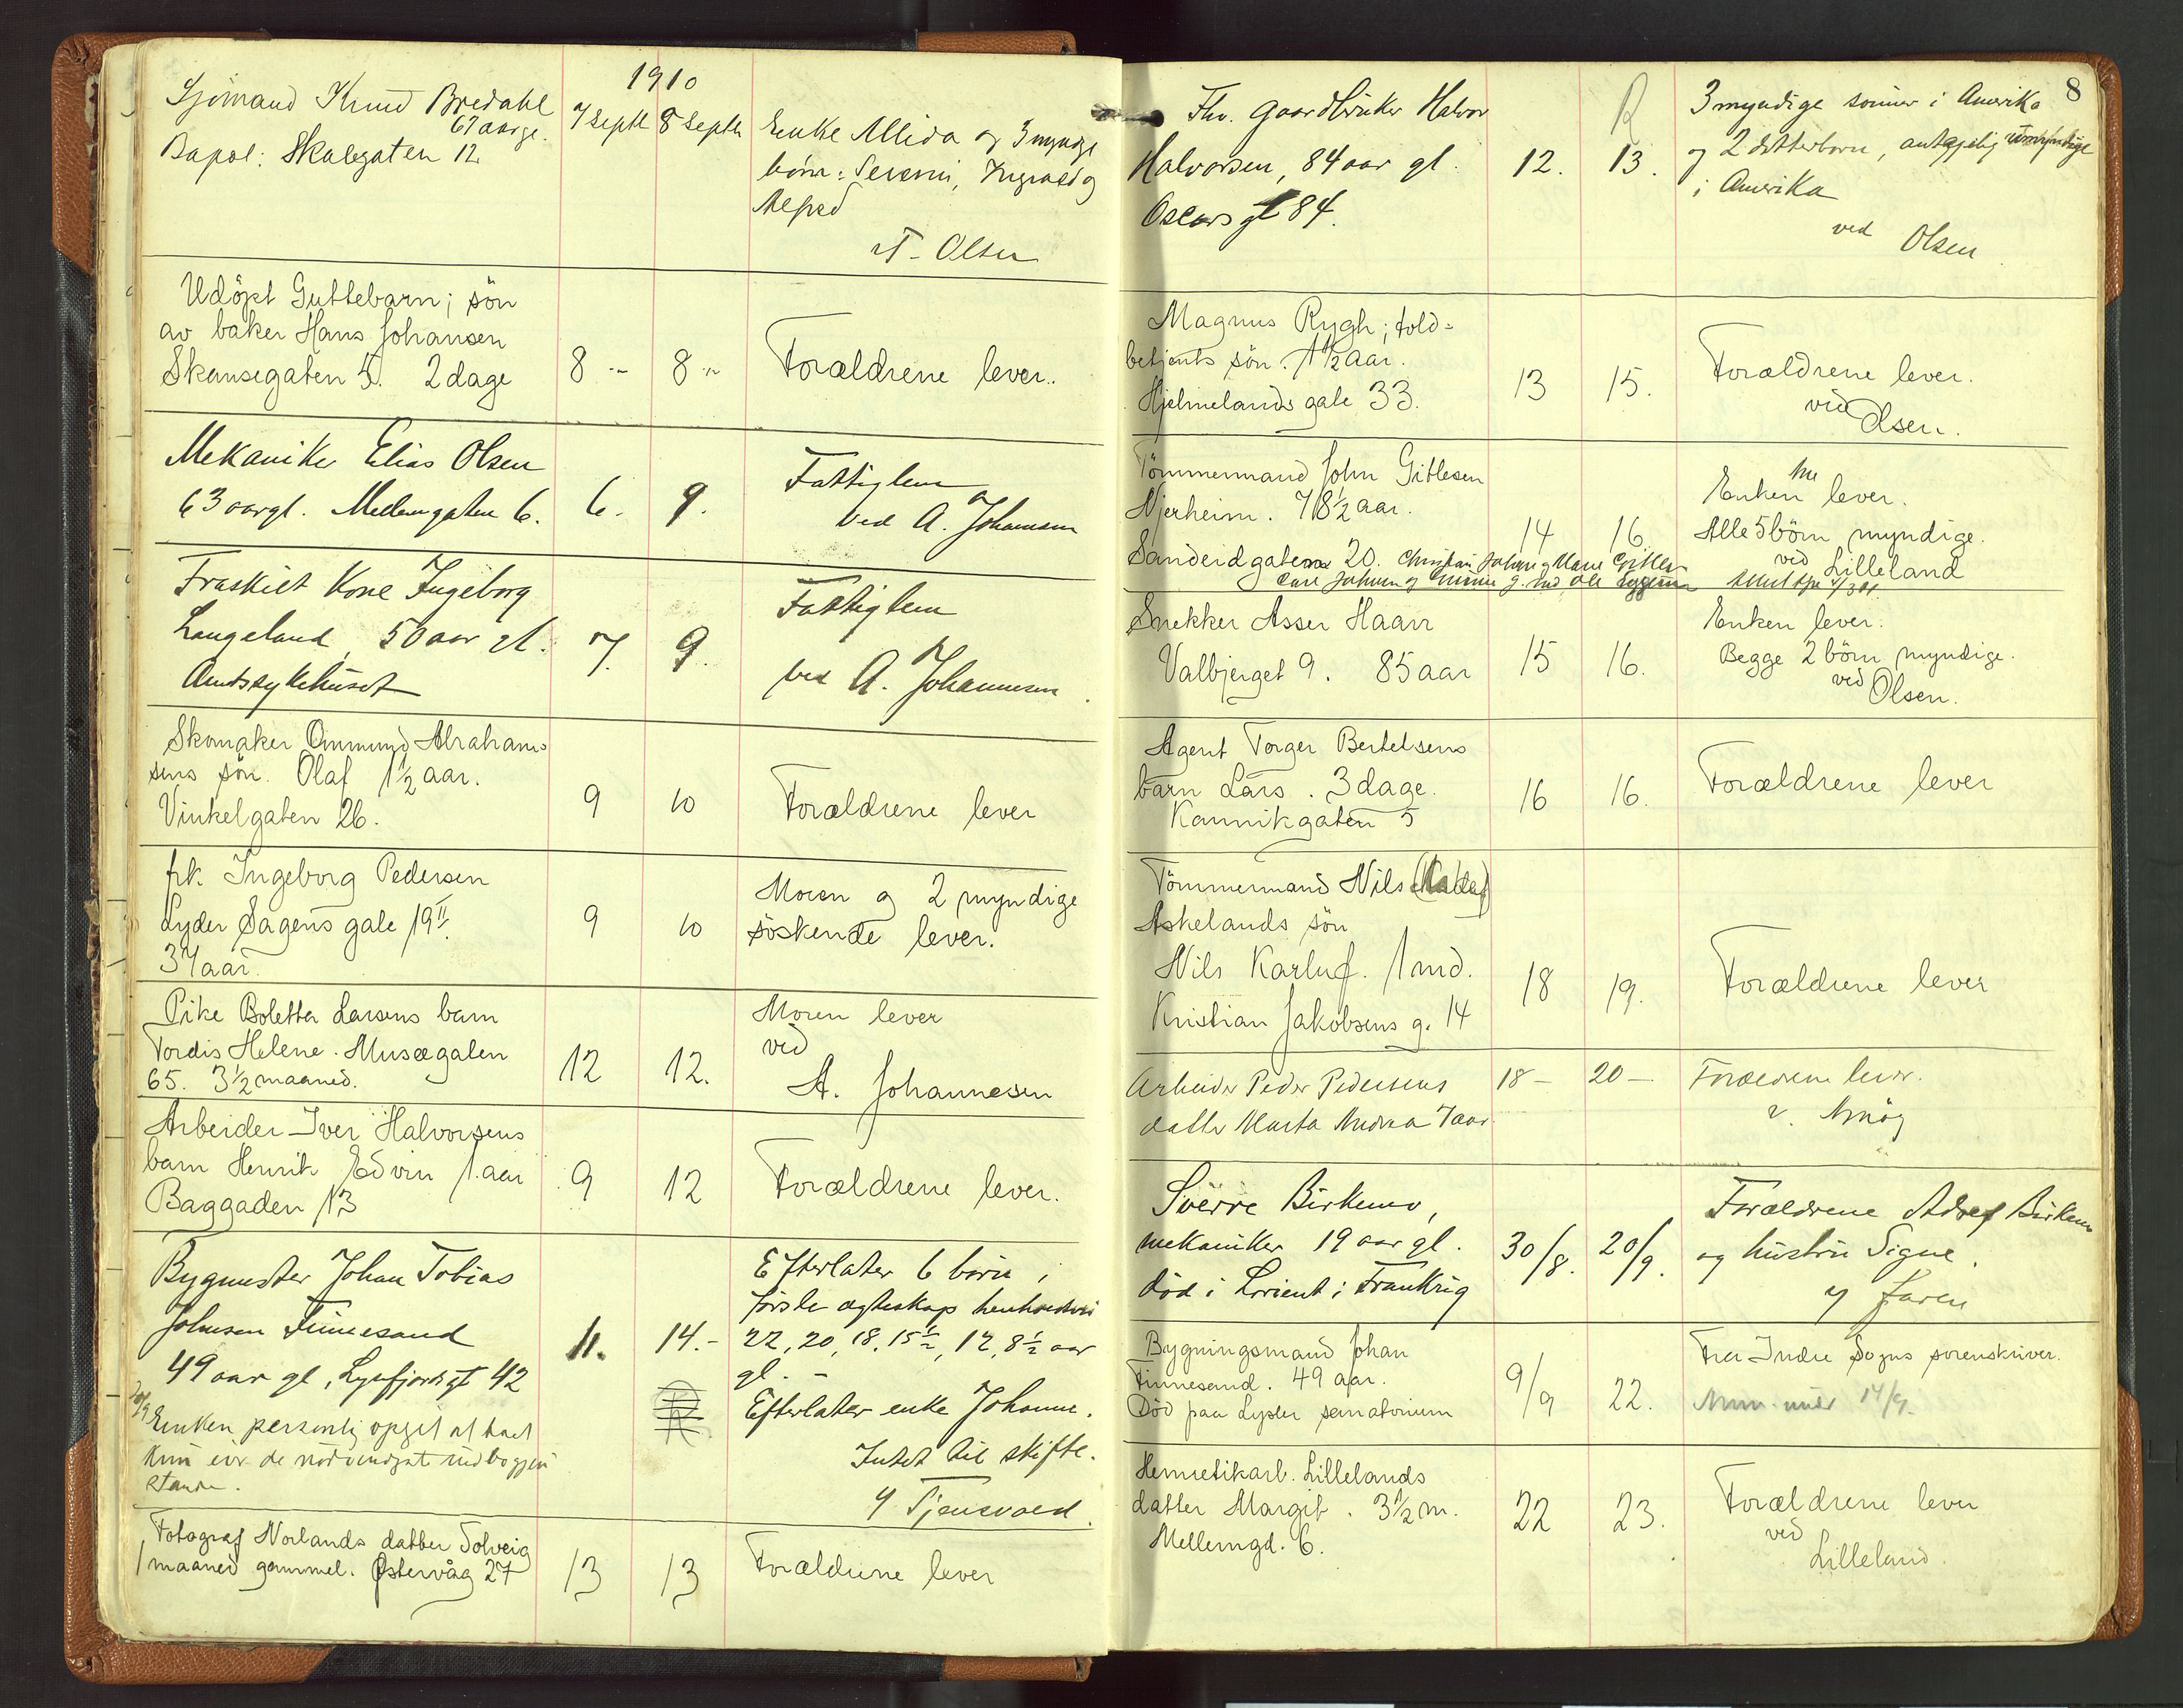 1910
Sjömand Knud Bredahl
67 aar gl.
Bopæl: Skolegaten 12
7 Septb 8 Septb
Enke Allida og 3 myndige
börn: Severin, Ingvald og
Alfred
T. Olsen
Udöpt Guttebarn; sön
av baker Hans Johansen
Skansegaten 5. 2 dage
8 - 8 -
Forældrene lever.
Mekaniker Elias Olsen
63 aar gl. Mellemgaten 6.
6. 9.
Fattiglem
ved A. Johannesen
Fraskilt Kone Ingeborg
Langeland, 50 aar gl.
Amtssykehuset
7. 9.
Fattiglem
ved A. Johannesen
Skomaker Ommund Abraham-
sens sön. Olaf 1½ aar.
Vinkelgaten 26.
9 10
Forældrene lever
frk. Ingeborg Pedersen
Lyder Sagens gate 19 II
37 aar.
9 10
Moren og 2 myndige
söskende lever.
Pike Boletta Larsens barn
Tordis Helene. Musægaten
65. 3½ maaned.
12 12.
Moren lever
ved
A. Johannesen
Arbeider Iver Halvorsens
barn Henrik Edvin 1. aar
Baggaden 13
9 12
Forældrene lever.
Bygmester Johan Tobias
Johnsen Finnesand
49 aar gl, Lysefjordsgt 42
11. 14.-
Efterlater 6 börn i
første ægteskap henholdsvis
22, 20, 18, 15½, 12, 8½ aar
gl. -
Efterlater enke Johanne.
Intet til skifte.
Tjensvold.
20/9 Enken personlig opgit at boet
kun eier de nödvendigste indbogjen
stande.
Fotograf Norlands datter Solveig
1 maaned gammel. Østervåg 27
13 13
Forældrene lever
8
Fhv. Gaardbruker Halvor
Halvorsen, 84 aar gl.
Oscars gt 84.
12. 13.
R
3 myndige sönner i Amerika
og 2 datterbörn, antagelig umyndige
i Amerika
ved Olsen
Magnus Rygh; told-
betjents sön. 1½ aar.
Hjelmelands gate 33.
13 15.
Forældrene lever.
ved
Olsen.
Tömmermand John Gitlesen
Njerheim. 78½ aar.
Sandeidgaten 20.
14 16.
Enken lever.
Alle 5 börn myndige.
ved Lilleland
Snekker Asser Haarr
Valbjerget 9. 85 aar
15 16.
Enken lever.
Begge 2 börn myndige.
ved Olsen.
Agent Torger Bertelsens
barn Lars. 3 dage.
Kannikgaten 5
16 16.
Forældrene lever
Tömmermand Nils
Askelands sön
Nils Karluf. 1 md.
Kristian Jakobsens g. 14
18 19.
Forældrene lever
Arbeider Peder Pedersens
datter Marta Andrea 7 aar.
18 - 20 -
Forældrene lever.
Sverre Birkemo,
mekaniker 19 aar gl.
död i Lorient i Frankrig
30/8. 20/9.
Forældrene Adolf Birkemo
og hustru Signe.
Bygningsmand Johan
Finnesand. 49 aar.
Död paa Lyster sanatorium
9/9 22.
Fra Indre Sogns sorenskriver.
14/9.
Hermetikarb. Lillelands
datter Margit. 3½ m.
Mellemgd. 6.
22 23.
Forældrene lever
ved
Lilleland.